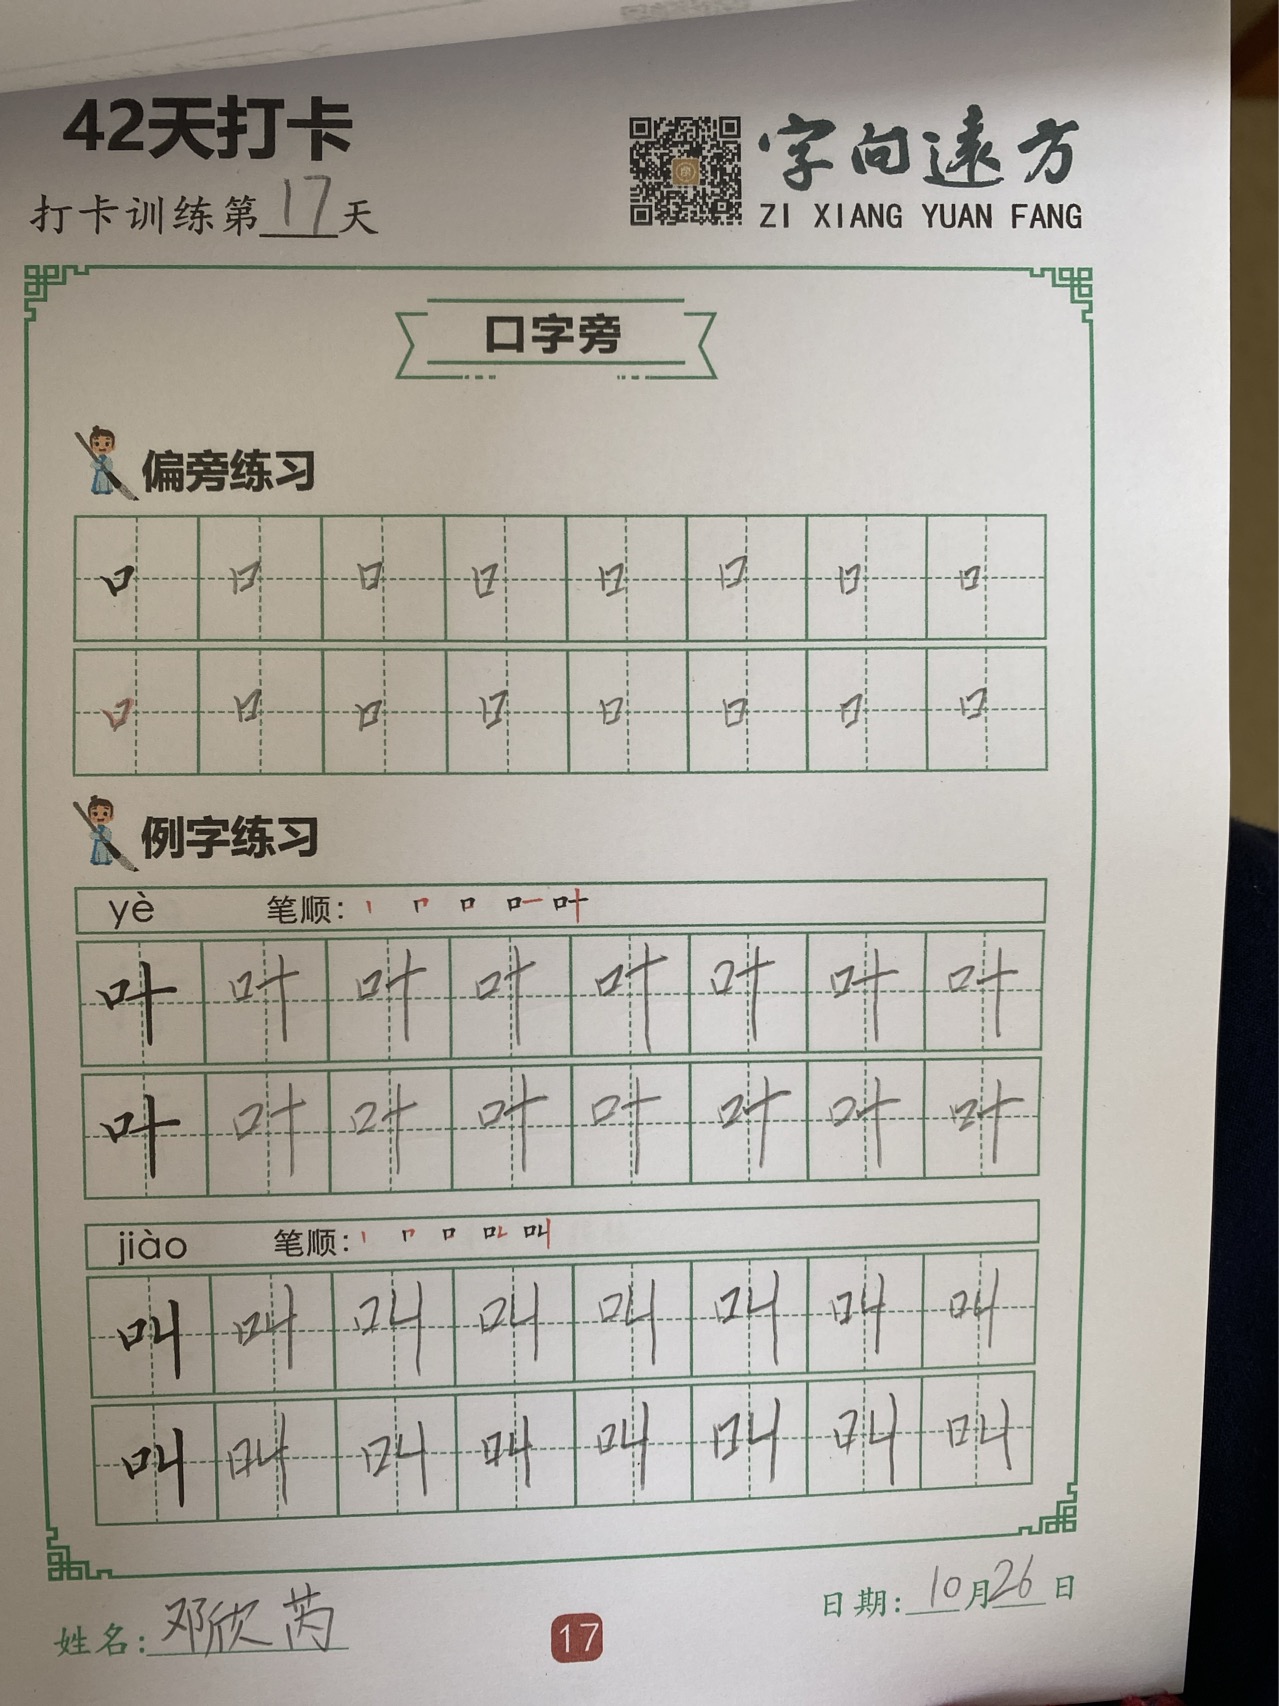 42天打卡
打卡训练第17天
字向遠方
ZI XIANG YUAN FANG
口字旁
偏旁练习
口 口 口 口 口 口 口 口
口 口 口 口 口 口 口 口
例字练习
yè 笔顺：
叶 叶 叶 叶 叶 叶 叶 叶
叶 叶 叶 叶 叶 叶 叶 叶
jiào 笔顺：
叫 叫 叫 叫 叫 叫 叫 叫
叫 叫 叫 叫 叫 叫 叫 叫
姓名:邓欣芮
17
日期:10月26日